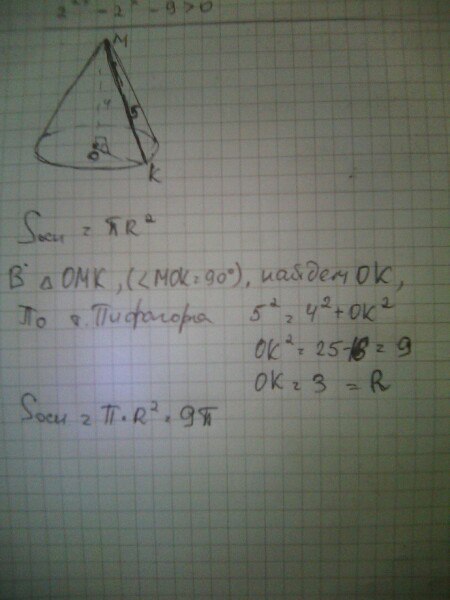 - 2ˣ - 9 > 0
M
4
5
O
K
Sосн = πR²
В △ OMK, (∠MOK = 90°), найдем OK,
По т. Пифагора 5² = 4² + OK²
OK² = 25-16 = 9
OK = 3 = R
Sосн = π · R² = 9π